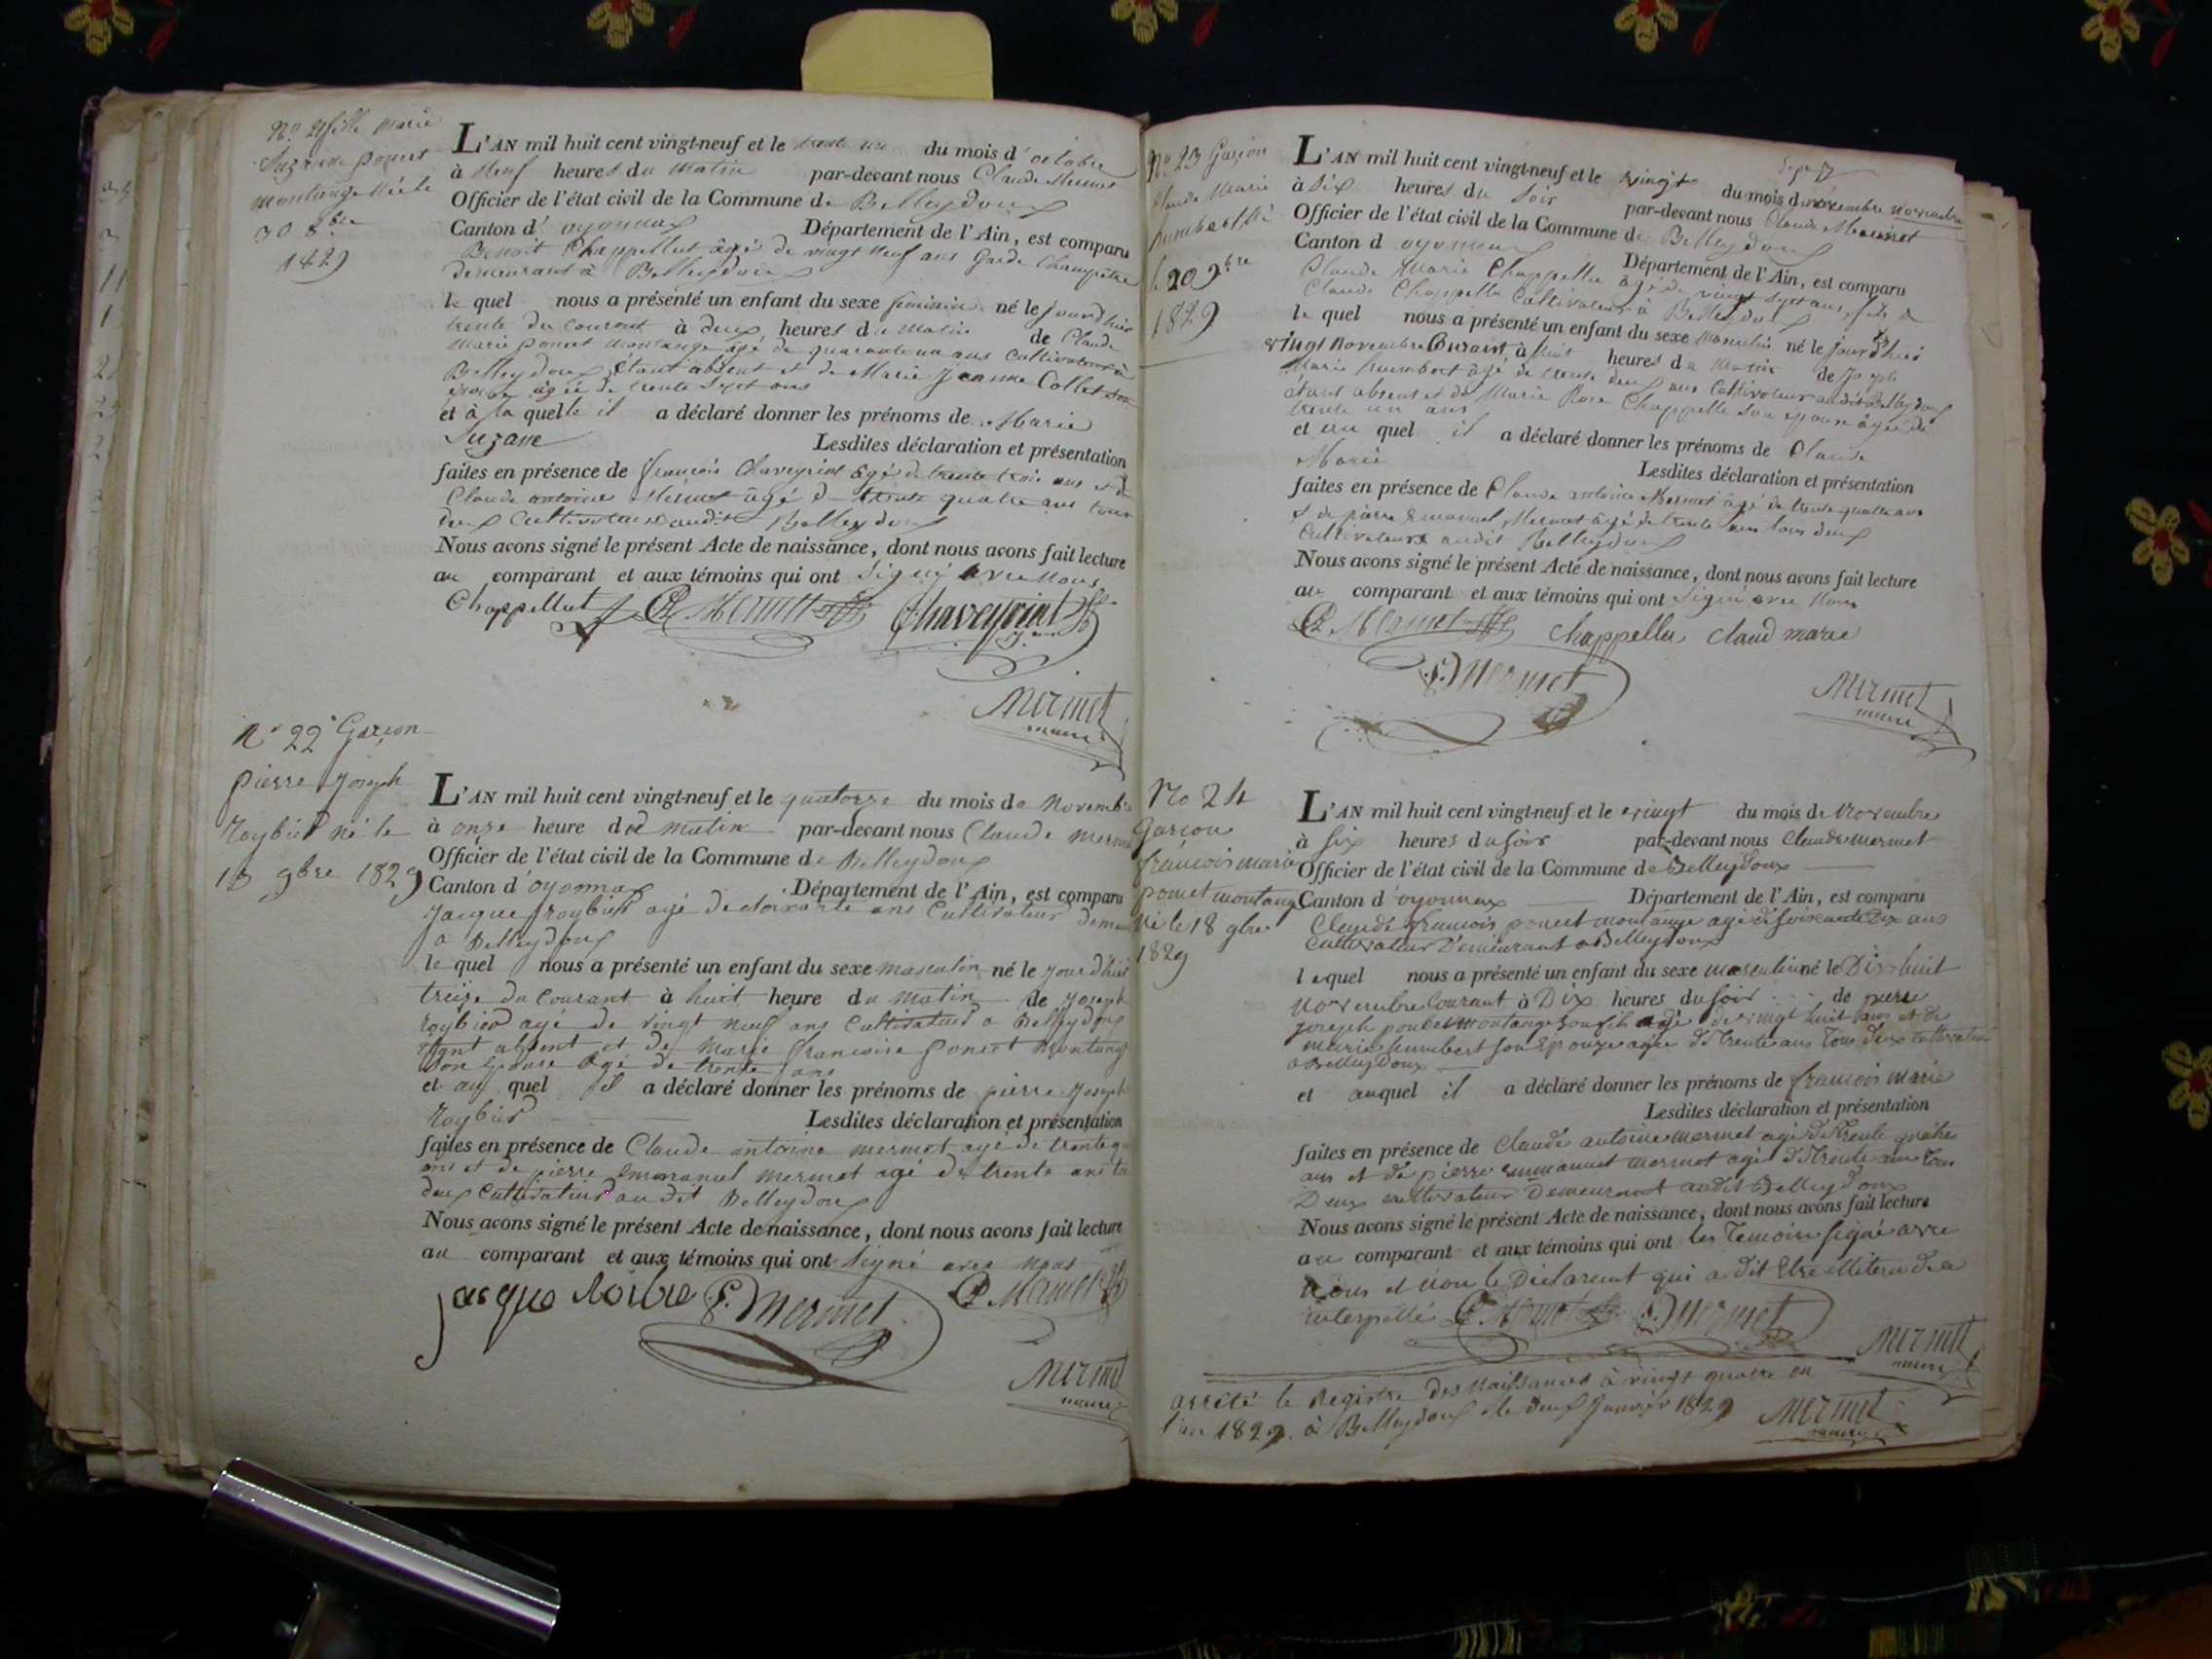 N.º 21 fille Marie
Suzanne poncet
montange née le
30 8.bre
1829
L'AN mil huit cent vingt-neuf et le trente un du mois d'octobre
à Neuf heures du Matin par-devant nous Claude Mermet
Officier de l'état civil de la Commune de Belleydoux
Canton d'oyonnax Département de l'Ain, est comparu
Benoit Chappellut âgé de vingt neuf ans Garde Champêtre
demeurant à Belleydoux
le quel nous a présenté un enfant du sexe feminin né le jourd'hier
trente du Courant à deux heures du Matin de Claude
Marie poncet Montange âgé de quarante un ans Cultivateur à
Belleydoux étant absent et de Marie Jeanne Collet son
épouse âgée de trente Sept ans
et à la quelle il a déclaré donner les prénoms de Marie
Suzane Lesdites déclaration et présentation
faites en présence de françois Chaveyriat âgé de trente trois ans et de
Claude antoine Mermet âgé de trente quatre ans tous
deux Cultivateurs audit Belleydoux
Nous avons signé le présent Acte de naissance, dont nous avons fait lecture
au comparant et aux témoins qui ont Signé avec Nous
Chappellut Mermet Chaveyriat
Mermet
maire
N.º 22 Garçon
pierre Joseph
Roybier né le
13 9bre 1829
L'AN mil huit cent vingt-neuf et le quatorze du mois de Novembre
à onze heure de matin par-devant nous Claude Mermet
Officier de l'état civil de la Commune de Belleydoux
Canton d'oyonnax Département de l'Ain, est comparu
Jacque roybier agé de soixante ans Cultivateur
a Belleydoux
le quel nous a présenté un enfant du sexe masculin né le jourd'hui
treize du Courant à huit heure du matin de Joseph
roybier agé de vingt neuf ans Cultivateur a Belleydoux
étant absent et de Marie francoise poncet montange
son Epouse agé de trente ans
et au quel il a déclaré donner les prénoms de pierre Joseph
Roybier Lesdites déclaration et présentation
faites en présence de Claude antoine mermet agé de trente
ans et de pierre emmanuel mermet agé de trente ans
deux Cultivateurs au dit Belleydoux
Nous avons signé le présent Acte de naissance, dont nous avons fait lecture
au comparant et aux témoins qui ont signé avec nous
jacque Roibie Mermet Mermet
Mermet
maire
N.º 23 Garçon
Claude Marie
humbert né
le 20 9.bre
1829
L'AN mil huit cent vingt-neuf et le vingt du mois de novembre novembre
à Six heures du Soir par-devant nous Claude Mermet
Officier de l'état civil de la Commune de Belleydoux
Canton d oyonnax Département de l'Ain, est comparu
Claude Marie Chappellu âgé de vingt Sept ans, fils de
Claude Chappellu Cultivateur à Belleydoux
le quel nous a présenté un enfant du sexe Masculin né le jourd'hui
vingt Novembre Courant à huit heures du Matin de Joseph
Marie humbert âgé de trente deux ans Cultivateur audit Belleydoux
étant absent et de Marie Rose Chappelle son epouse âgée de
trente un ans
et au quel il a déclaré donner les prénoms de Claude
Marie Lesdites déclaration et présentation
faites en présence de Claude antoine Mermet âgé de trente quatre ans
et de pierre Emmanuel Mermet âgé de trente ans tous deux
Cultivateurs audit Belleydoux
Nous avons signé le présent Acte de naissance, dont nous avons fait lecture
au comparant et aux témoins qui ont Signé avec Nous
Mermet Chappellu claud marie
Mermet
Mermet
maire
No 24
Garcon
francois marie
poncet montange
né le 18 9bre
1829
L'AN mil huit cent vingt-neuf et le vingt du mois de Novembre
à six heures du soir par-devant nous Claude mermet
Officier de l'état civil de la Commune de Belleydoux
Canton d'oyonnax Département de l'Ain, est comparu
Claude francois poncet montange agé de soixante Dix ans
Cultivateur Demeurant a Belleydoux
lequel nous a présenté un enfant du sexe masculin né le Dix huit
Novembre Courant à Dix heures du soir de pierre
joseph poncet montange son fils agé de vingt huit ans et de
marie humbert son Epouze agée de Trente ans Tous Deux Cultivateurs
a Belleydoux
et auquel il a déclaré donner les prénoms de francois marie
Lesdites déclaration et présentation
faites en présence de claude antoine mermet agé de trente quatre
ans et de pierre emmanuel mermet agé de Trente ans Tous
Deux cultivateur Demeurant audit Belleydoux
Nous avons signé le présent Acte de naissance, dont nous avons fait lecture
au comparant et aux témoins qui ont les Temoins signé avec
Nous et non le Déclarant qui a dit Etre illiteré de ce
interpellé Mermet Mermet
Mermet
maire
arrêté le Registre des Naissances à vingt quatre en
l'an 1829. à Belleydoux le deux Janvier 1829 Mermet
maire